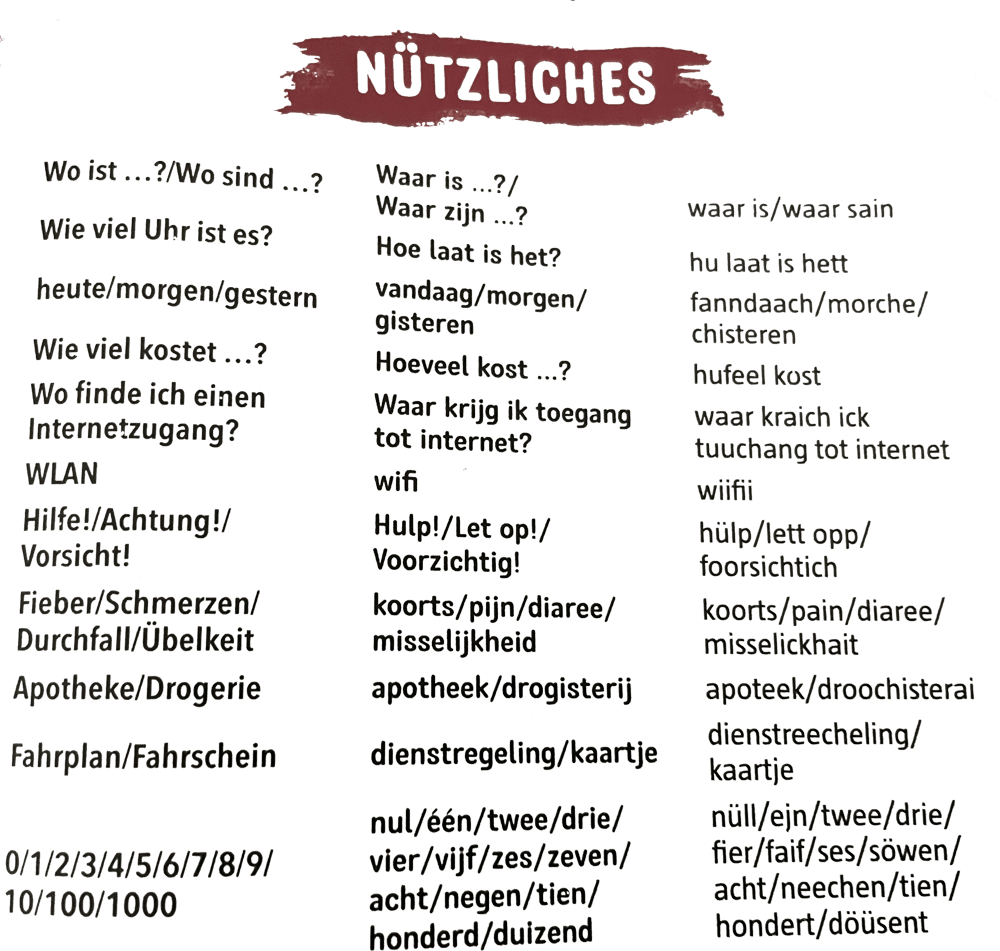 NÜTZLICHES
Wo ist ...?/Wo sind ...?
Waar is ...?/
Waar zijn ...?
waar is/waar sain
Wie viel Uhr ist es?
Hoe laat is het?
hu laat is hett
heute/morgen/gestern
vandaag/morgen/
gisteren
fanndaach/morche/
chisteren
Wie viel kostet ...?
Hoeveel kost ...?
hufeel kost
Wo finde ich einen
Internetzugang?
Waar krijg ik toegang
tot internet?
waar kraich ick
tuuchang tot internet
WLAN
wifi
wiifii
Hilfe!/Achtung!/
Vorsicht!
Hulp!/Let op!/
Voorzichtig!
hülp/lett opp/
foorsichtich
Fieber/Schmerzen/
Durchfall/Übelkeit
koorts/pijn/diaree/
misselijkheid
koorts/pain/diaree/
misselickhait
Apotheke/Drogerie
apotheek/drogisterij
apoteek/droochisterai
Fahrplan/Fahrschein
dienstregeling/kaartje
dienstreecheling/
kaartje
0/1/2/3/4/5/6/7/8/9/
10/100/1000
nul/één/twee/drie/
vier/vijf/zes/zeven/
acht/negen/tien/
honderd/duizend
nüll/ejn/twee/drie/
fier/faif/ses/söwen/
acht/neechen/tien/
hondert/döüsent